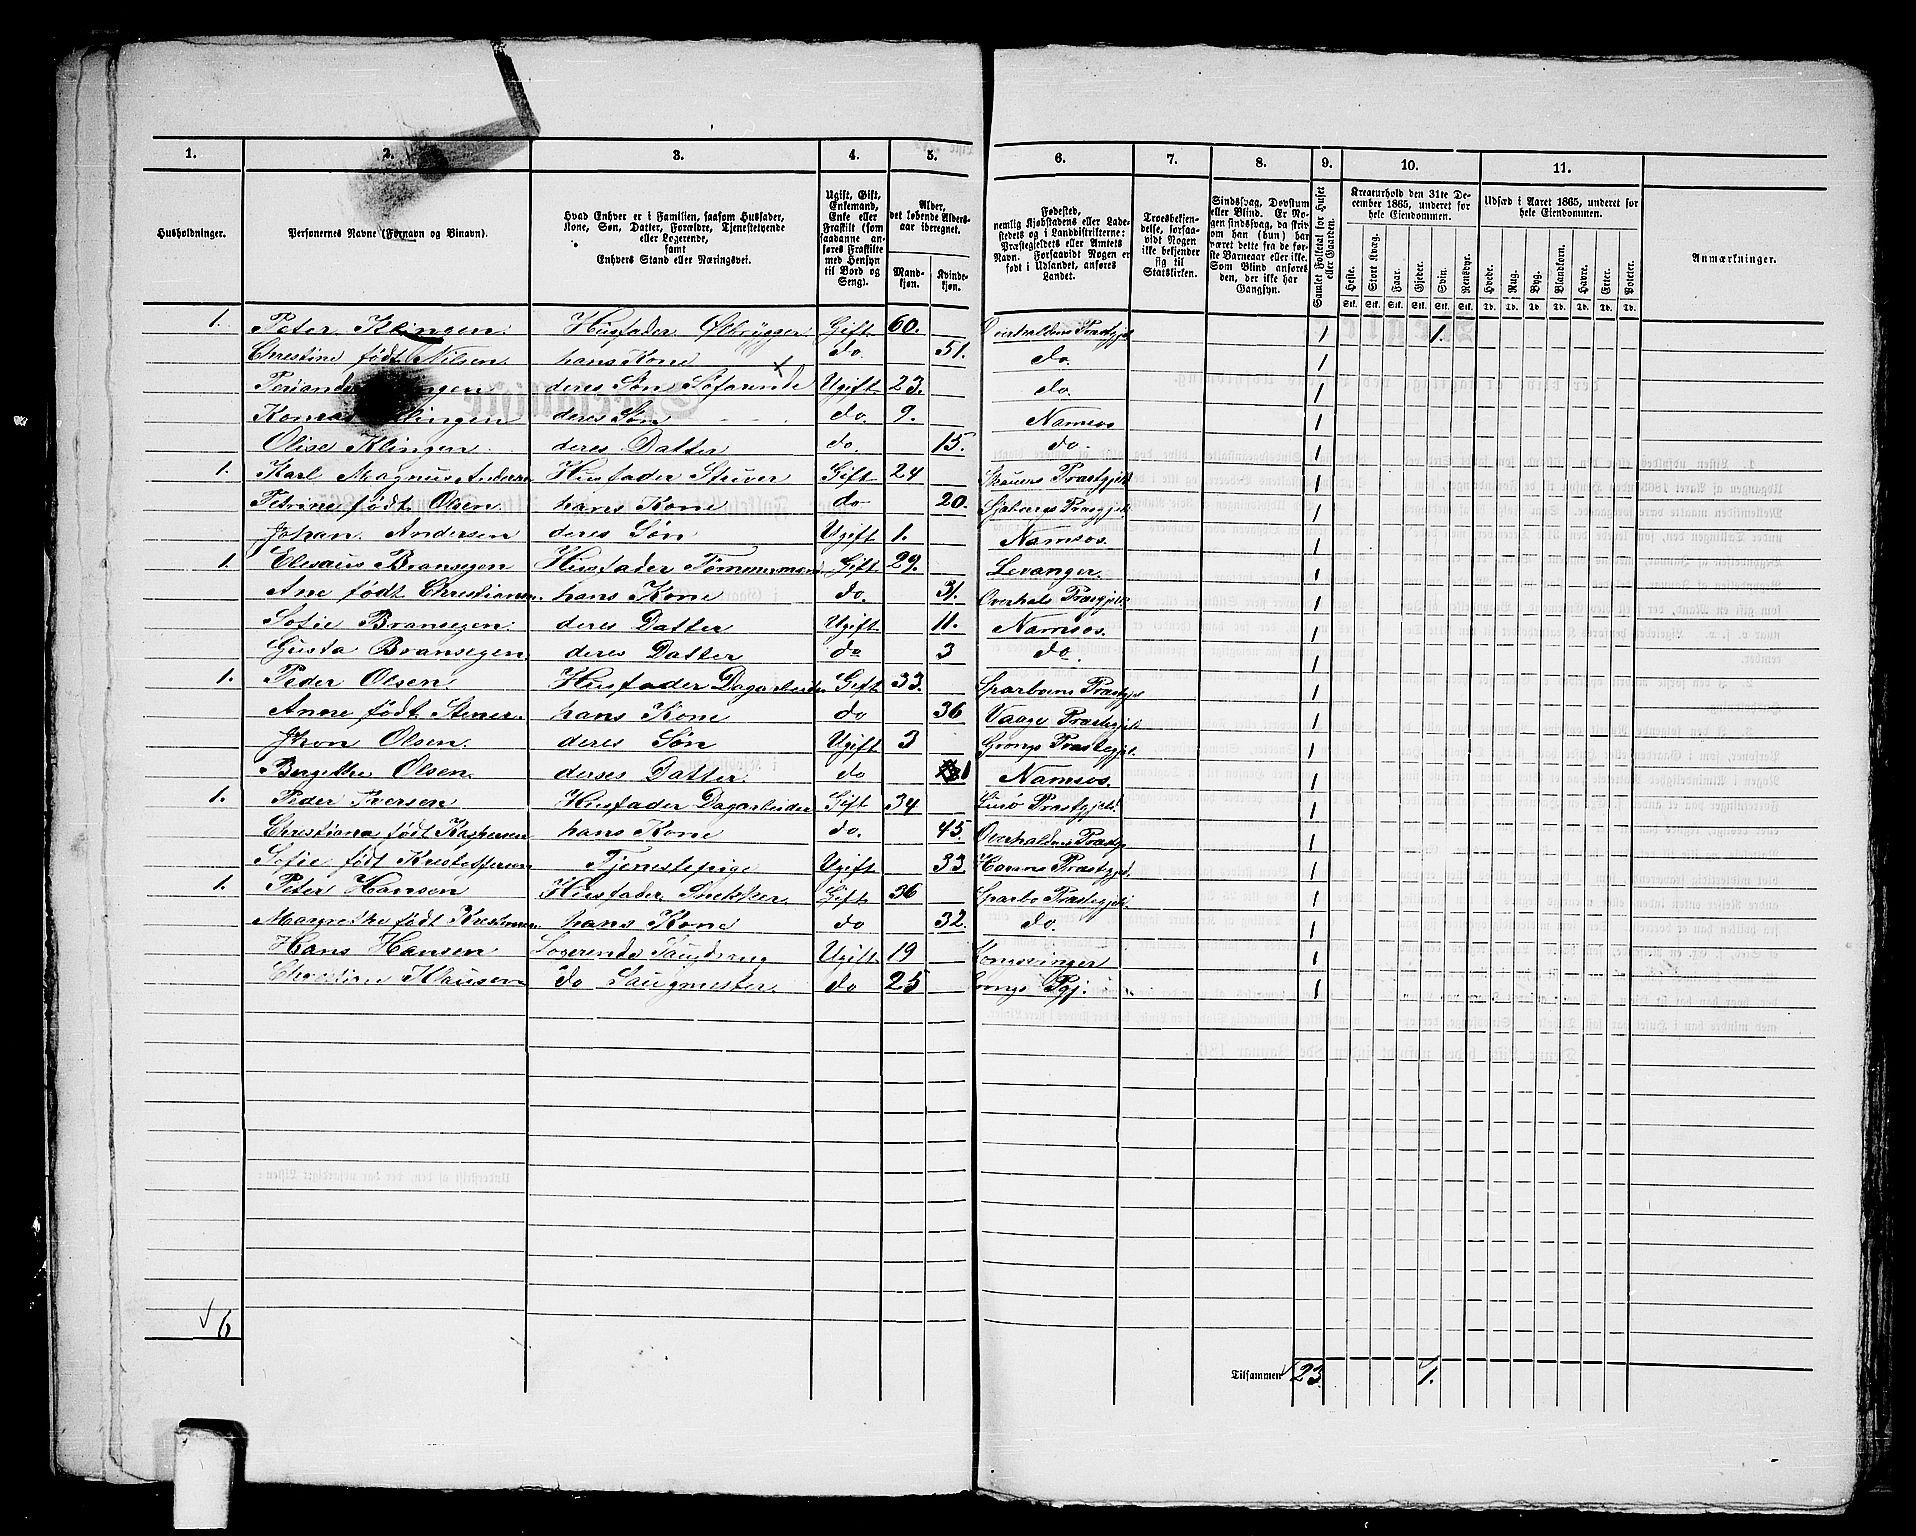 1. 2. 3. 4. 5. 6. 7. 8. 9. 10. 11.
Husholdninger.
Personernes Navne (Fornavn og Binavn).
Hvad Enhver er i Familien, saasom Husfader,
Kone, Søn, Datter, Forældre, Tjenestetyende
eller Logerende,
samt
Enhvers Stand eller Næringsvei.
Ugift, Gift,
Enkemand,
Enke eller
Fraskilt (som
saadanne an-
føres Fraskilte
med Hensyn
til Bord og
Seng).
Alder,
det løbende Alders-
aar iberegnet.
Mand-
kjøn.
Kvinde-
kjøn.
Fødested,
nemlig Kjøbstadens eller Lade-
stedets og i Landdistrikterne:
Præstegjeldets eller Amtets
Navn. Forsaavidt Nogen er
født i Udlandet, anføres
Landet.
Troesbekjen-
delse, forsaa-
vidt Nogen
ikke bekjender
sig til
Statskirken.
Sindssvag, Døvstum
eller Blind. Er No-
gen sindssvag, da skriv
om han (hun) har
været dette fra de før-
ste Barneaar eller ikke.
Som Blind anføres
den, der ikke har
Gangsyn.
Samlet Folketal for Huset
eller Gaarden.
Kreaturhold den 31te De-
cember 1865, underet for
hele Eiendommen.
Heste. Stort Kvæg. Faar. Gjeder. Svin. Rensdyr.
Stk. Stk. Stk. Stk. Stk. Stk.
Udsæd i Aaret 1865, underet for
hele Eiendommen.
Hvede. Rug. Byg. Blandkorn. Havre. Erter. Poteter.
Td. Td. Td. Td. Td. Td. Td.
Anmærkninger.
1. Peter Klingen. Husfader Ølbrygger Gift 60. Overhaldens Præstgjel 1 1.
Christine født Nilsen. hans Kone do. 51. do. 1
Klingen deres Søn Søfarende Ugift 23. do. 1
Konrad Klingen deres Søn do. 9. Namsos 1
Olise Klingen. deres Datter do. 15. do. 1
1. Karl Magnus Anders Husfader Skriver Gift 24 Præstgjeld 1
Petrine født Olsen hans Kone do 20. Præstgjeld. 1
Johan. Andersen deres Søn Ugift 1. Namsos. 1
1. Elesæus Bransegen Husfader Tømmermand Gift 29. Levanger. 1
Ane født Christiansen. hans Kone do. 31. Overhals Præstgjeld 1
Sofie Bransegen. deres Datter Ugift 11. Namsos. 1
Gusta Bransegen. deres Datter do 3 do. 1
1. Peder Olsen. Husfader Dagarbeider Gift 33. Sparboens Præstgjel 1
Anne født Stener. hans Kone do 36 Vaage Præstegjel. 1
Jhon Olsen. deres Søn Ugift 3 Grongs Præstegjel. 1
Bergithe Olsen. derses Datter do 1 Namsos. 1
1. Peder Iversen Husfader Dagarbeider Gift 34 Præstgjeld. 1
Christiana født Kaspersen hans Kone do. 45. Overhaldens Præstgj 1
Sofie født Kristoffersen Tjenestepige Ugift 33. Præstgjel. 1
1. Peter Hansen Husfader Snekker Gift 36 Sparbo Præstegjel. 1
Margrethe født hans Kone do 32. do. 1
Hans Hansen Logerende Ugift 19 Kongsvinger 1
Christian Klausen do Saugmester. do 25 Grongs Pgj. 1
6
Tilsammen 23. 1.